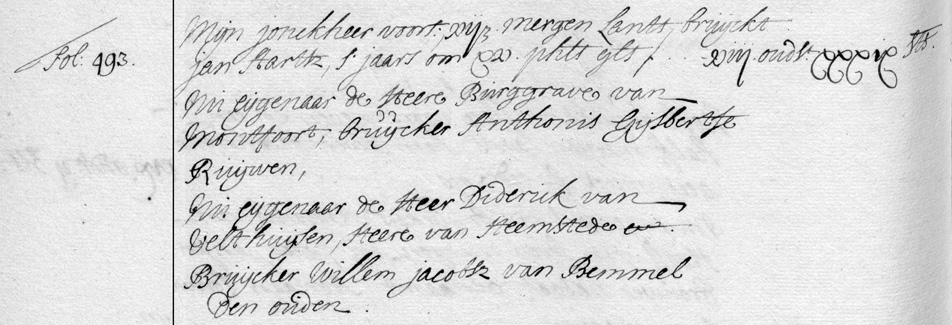 Mijn jonckheer voors: xvij½ mergen Lants bruyckt
Fol. 493. Jan Aartsz, s' jaars om xx. phls gls /. xvij ouds
Nu eygenaar de Heere Burggrave van
Montfoort, bruÿcker Anthonis Gijsbertse
Ruijwen,
Nu eygenaar de Heer Diderick van
Velthuijsen, Heere van Heemstede en.
Bruijcker Willem jacobsz van Bemmel
Den ouden.